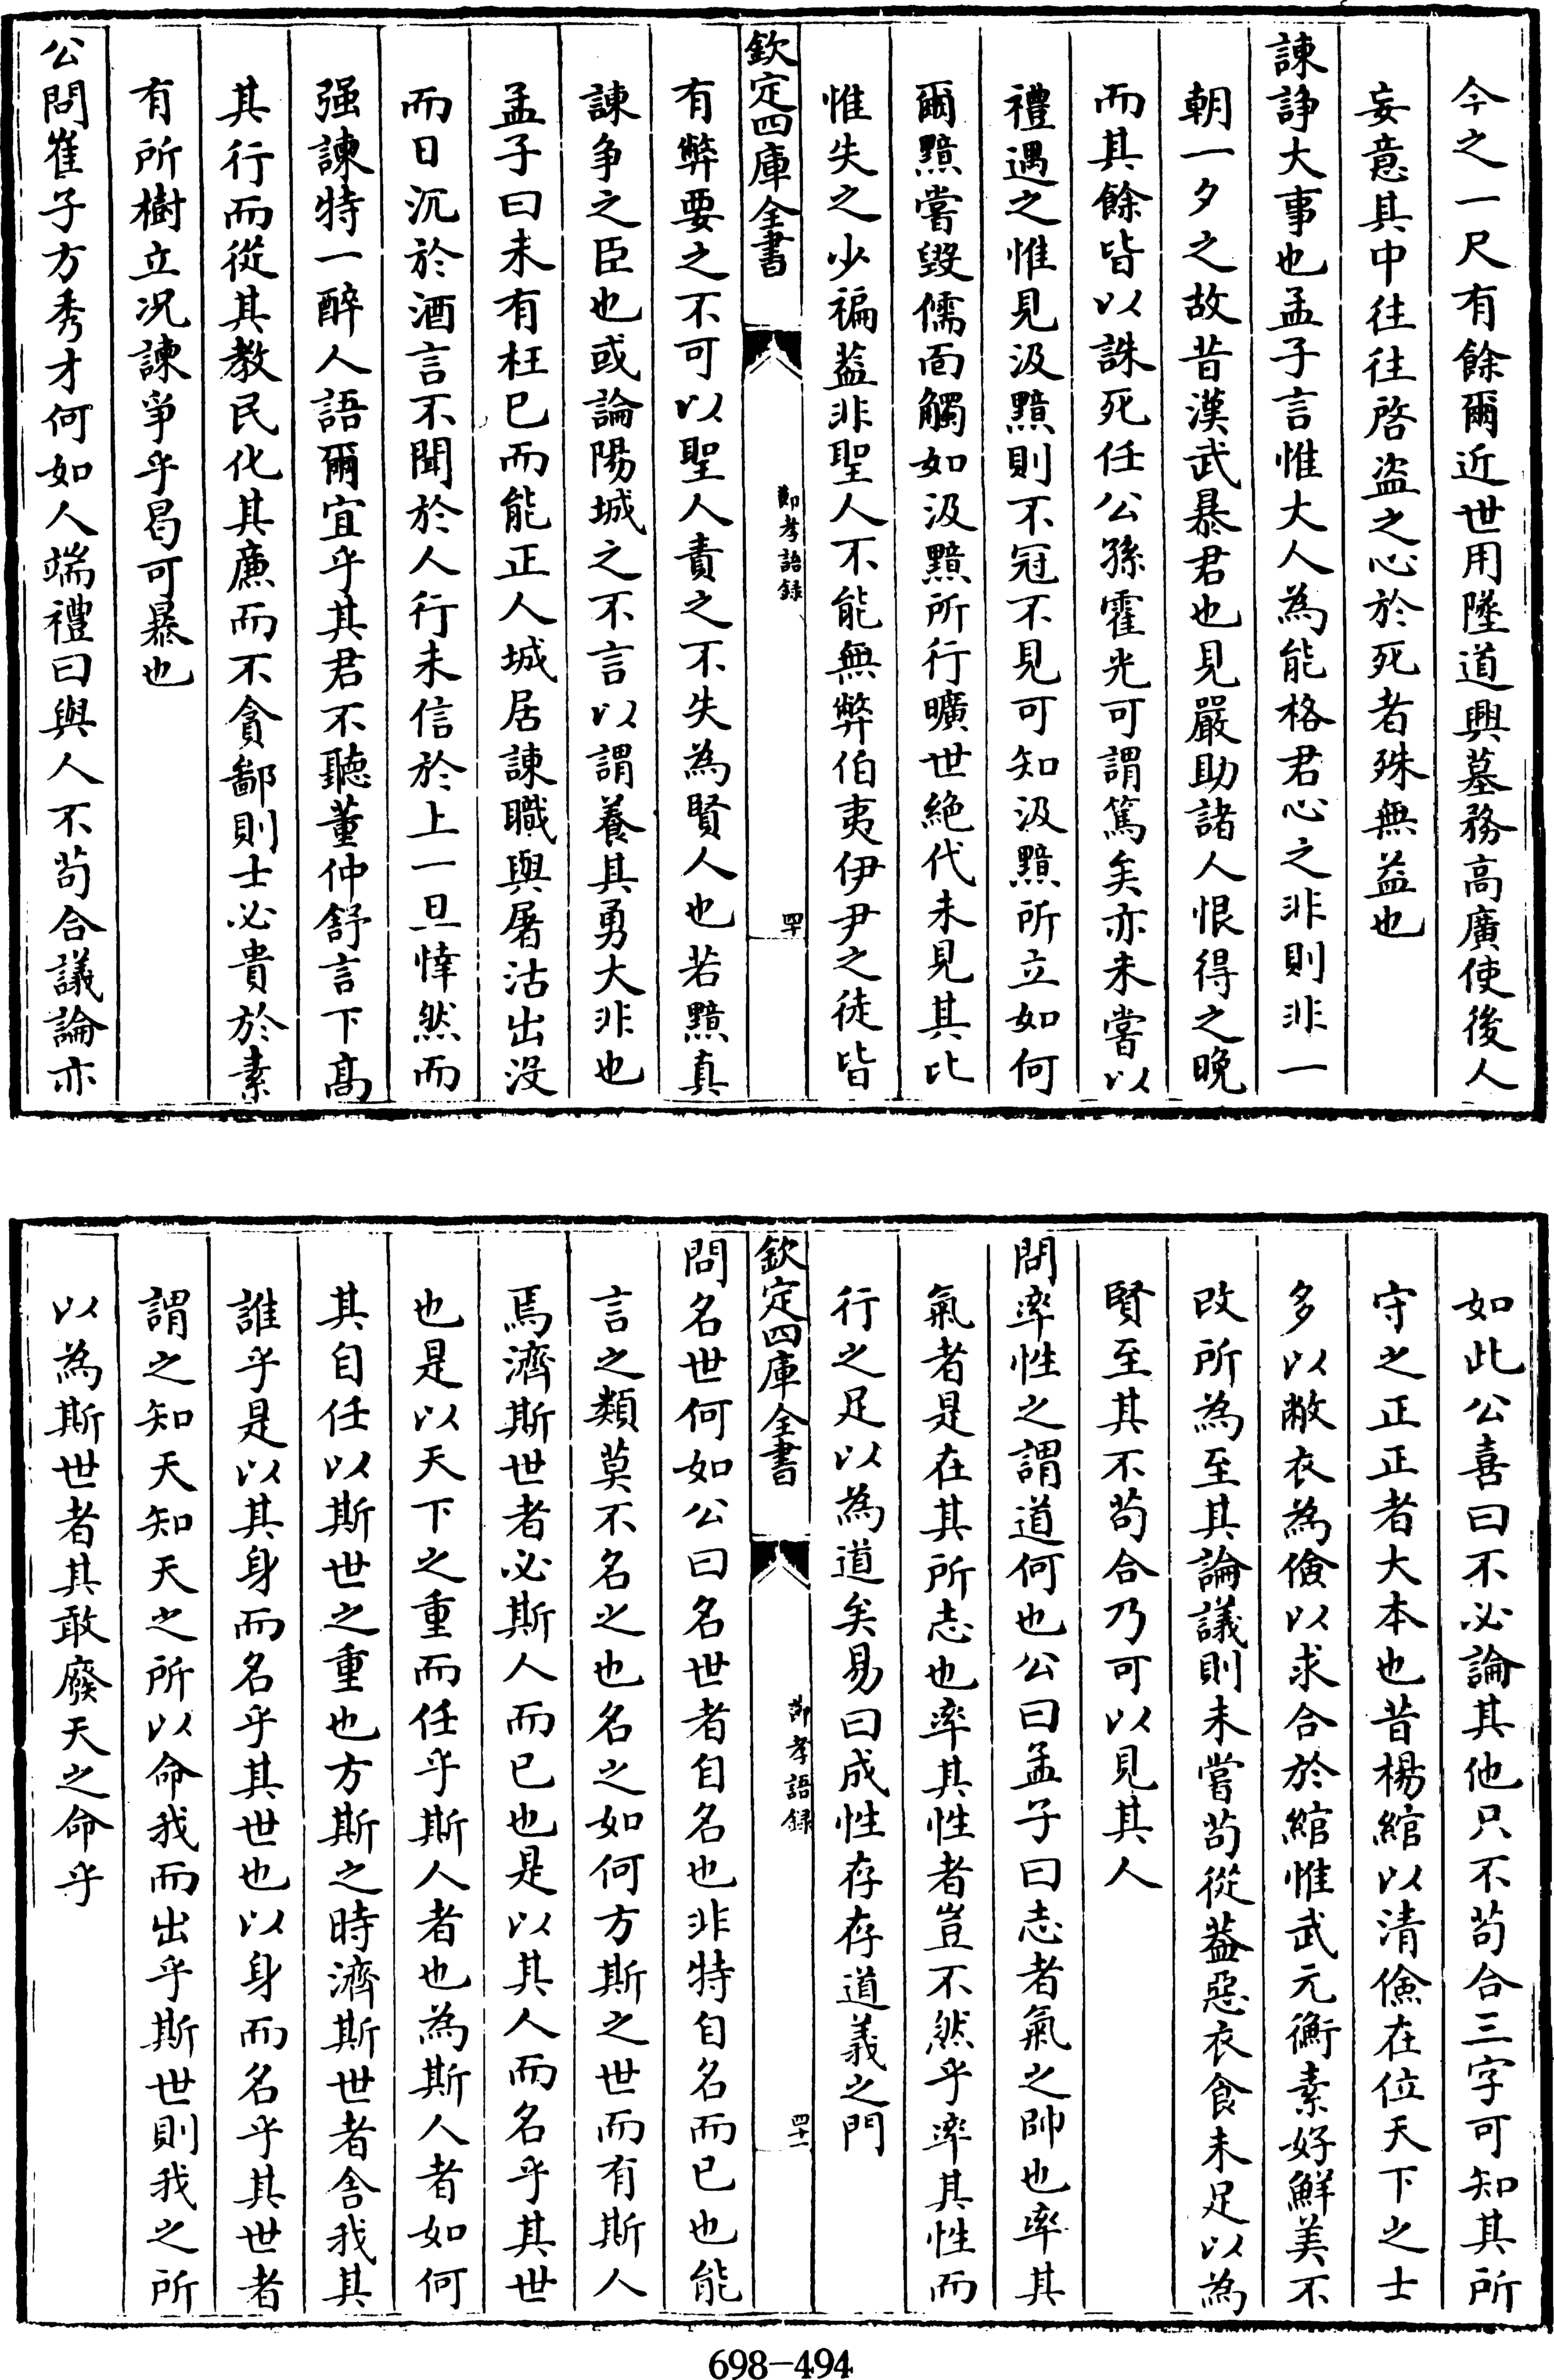 今之一尺有餘爾近世用墜道興墓務高廣使後人
妄意其中往往啓盗之心於死者殊無益也
諫諍大事也孟子言惟大人為能格君心之非則非一
朝一夕之故昔漢武暴君也見嚴助諸人恨得之晚
而其餘皆以誅死任公孫霍光可謂篤矣亦未嘗以
禮遇之惟見汲黯則不冠不見可知汲黯所立如何
爾黯嘗毀儒面觸如汲黯所行曠世絶代未見其比
惟失之少褊葢非聖人不能無弊伯夷伊尹之徒皆
欽定四庫全書
節孝語録
四十
有弊要之不可以聖人責之不失為賢人也若黯真
諫争之臣也或論陽城之不言以謂養其勇大非也
孟子曰未有枉已而能正人城居諫職與屠沽出没
而日沉於酒言不聞於人行未信於上一旦悻然而
强諫特一醉人語爾宜乎其君不聽董仲舒言下髙
其行而從其教民化其廉而不貪鄙則士必貴於素
有所樹立况諫爭乎曷可暴也
公問崔子方秀才何如人端禮曰與人不苟合議論亦
如此公喜曰不必論其他只不苟合三字可知其所
守之正正者大本也昔楊綰以清儉在位天下之士
多以敝衣為儉以求合於綰惟武元衡素好鮮美不
改所為至其論議則未嘗苟從葢惡衣食未足以為
賢至其不苟合乃可以見其人
問率性之謂道何也公曰孟子曰志者氣之帥也率其
氣者是在其所志也率其性者豈不然乎率其性而
行之足以為道矣易曰成性存存道義之門
欽定四庫全書
節孝語録
四十一
問名世何如公曰名世者自名也非特自名而已也能
言之類莫不名之也名之如何方斯之世而有斯人
焉濟斯世者必斯人而已也是以其人而名乎其世
也是以天下之重而任乎斯人者也為斯人者如何
其自任以斯世之重也方斯之時濟斯世者舍我其
誰乎是以其身而名乎其世也以身而名乎其世者
謂之知天知天之所以命我而出乎斯世則我之所
以為斯世者其敢廢天之命乎
698-494